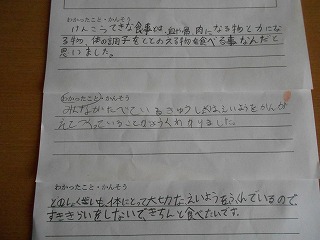 わかったこと・かんそう
けんこうてきな食事は、血や骨、肉になる物と力にな
る物、体の調子をととのえる物を食べる事なんだと
思いました。
わかったこと・かんそう
みんながたべているきゅうしょくは、えいようをかんが
えてつくっていることがよくわかりました
わかったこと・かんそう
どのしょく品も、体にとって大切なえいようをふくんでいるので、
すききらいをしないで、きちんと食べたいです。